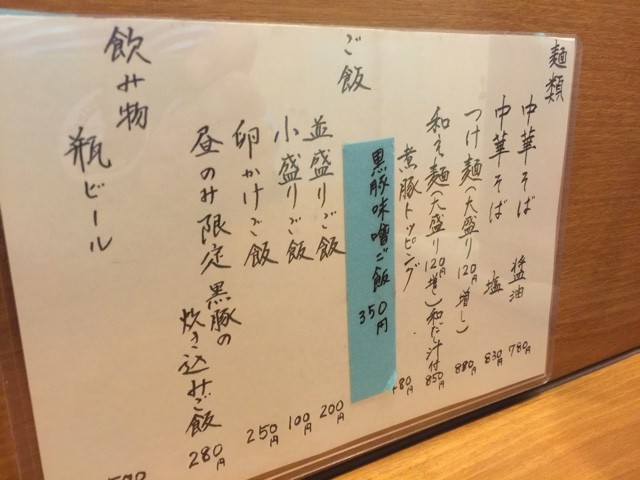 麺類
中華そば 醤油 780円
中華そば 塩 830円
つけ麺(大盛り120円増し) 880円
和え麺(大盛り120円増し)和だし汁付 850円
煮豚トッピング 480円
ご飯
黒豚味噌ご飯 350円
並盛りご飯 200円
小盛りご飯 100円
卵かけご飯 250円
昼のみ限定 黒豚の
炊き込みご飯 280円
飲み物
瓶ビール